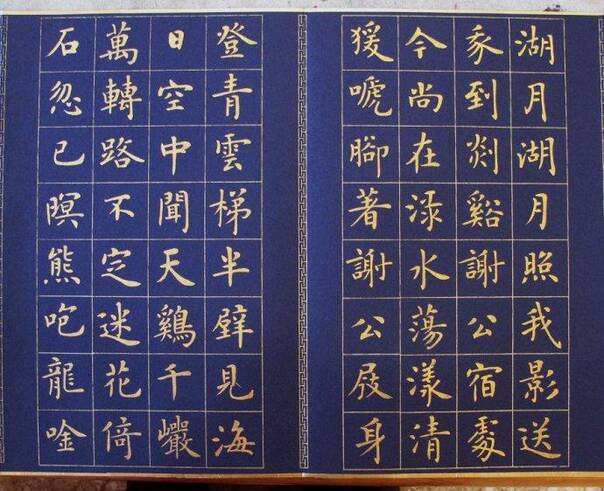 湖月湖月照我影送
我到剡谿謝公宿處
今尚在渌水蕩漾清
猨嗁腳著謝公屐身
登青雲梯半壁見海
日空中聞天鷄千巖
萬轉路不定迷花倚
石忽已暝熊咆龍唫